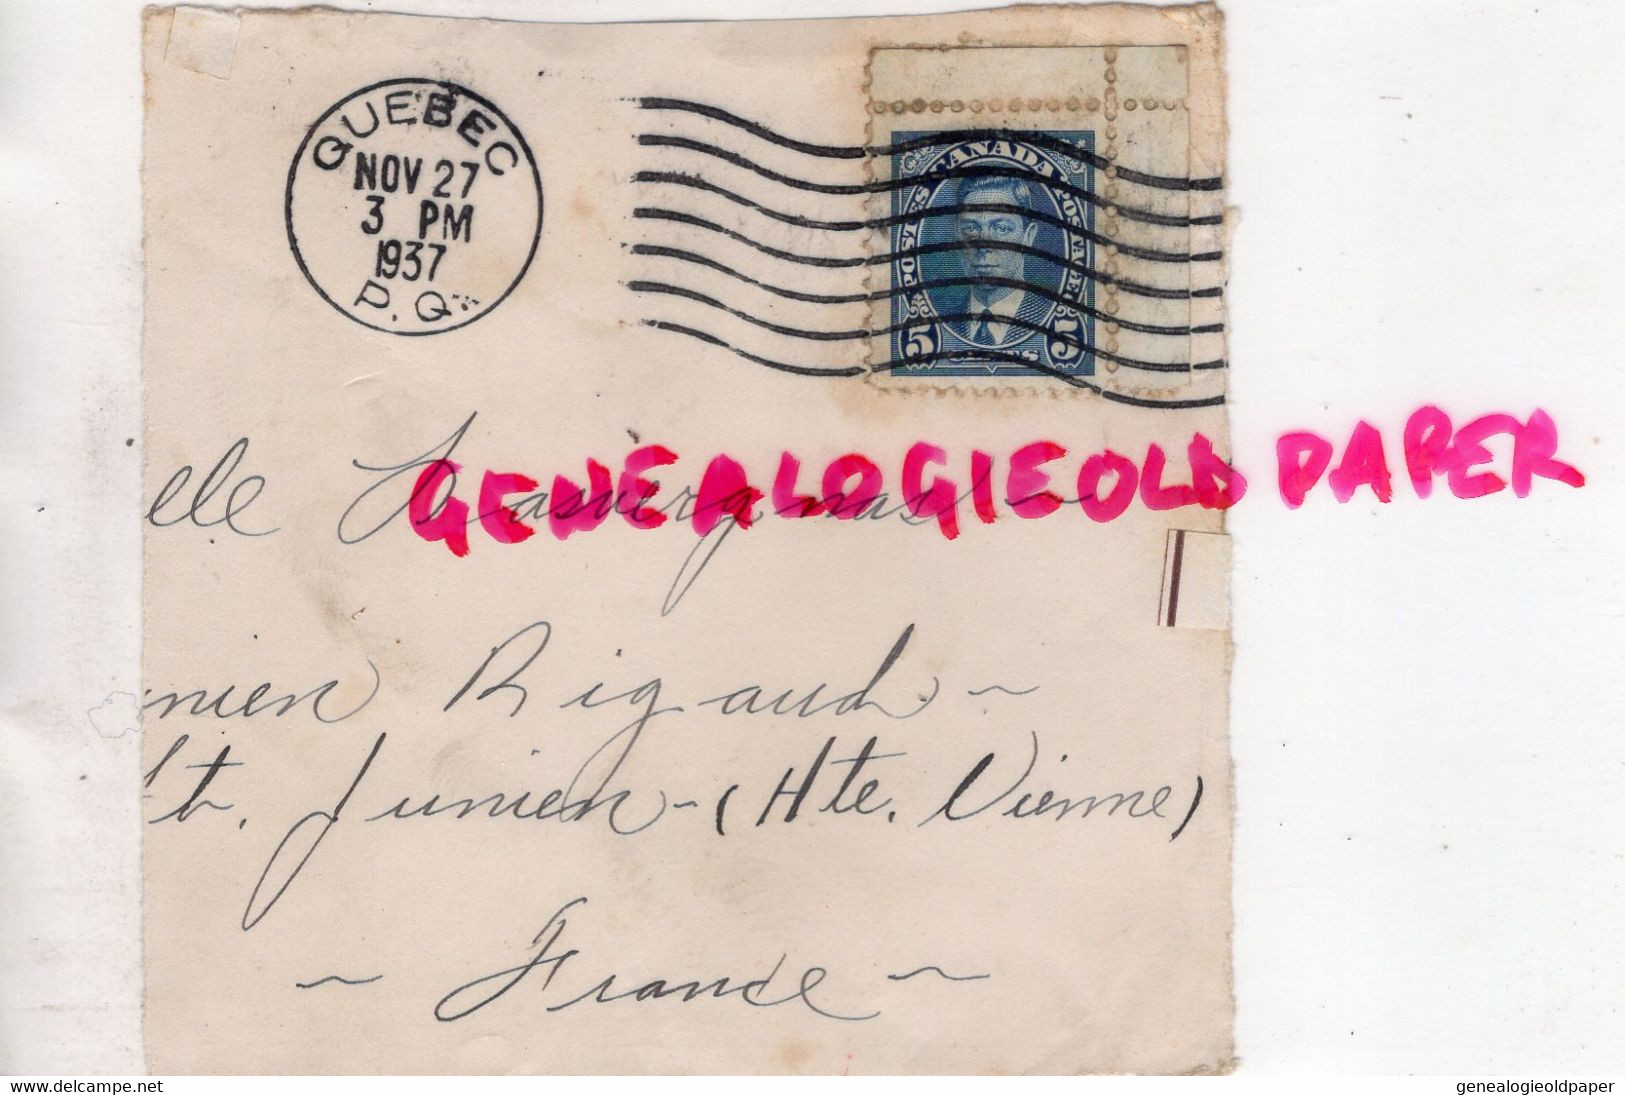 QUEBEC
NOV 27
3 PM
1937
P.Q.
POSTES CANADA POSTAGE
5 CENTS 5
GENEALOGIEOLD PAPER
ele Lasvergnas
nien Rigaud
St. Junien - (Hte. Vienne)
France
www.delcampe.net
genealogieoldpaper